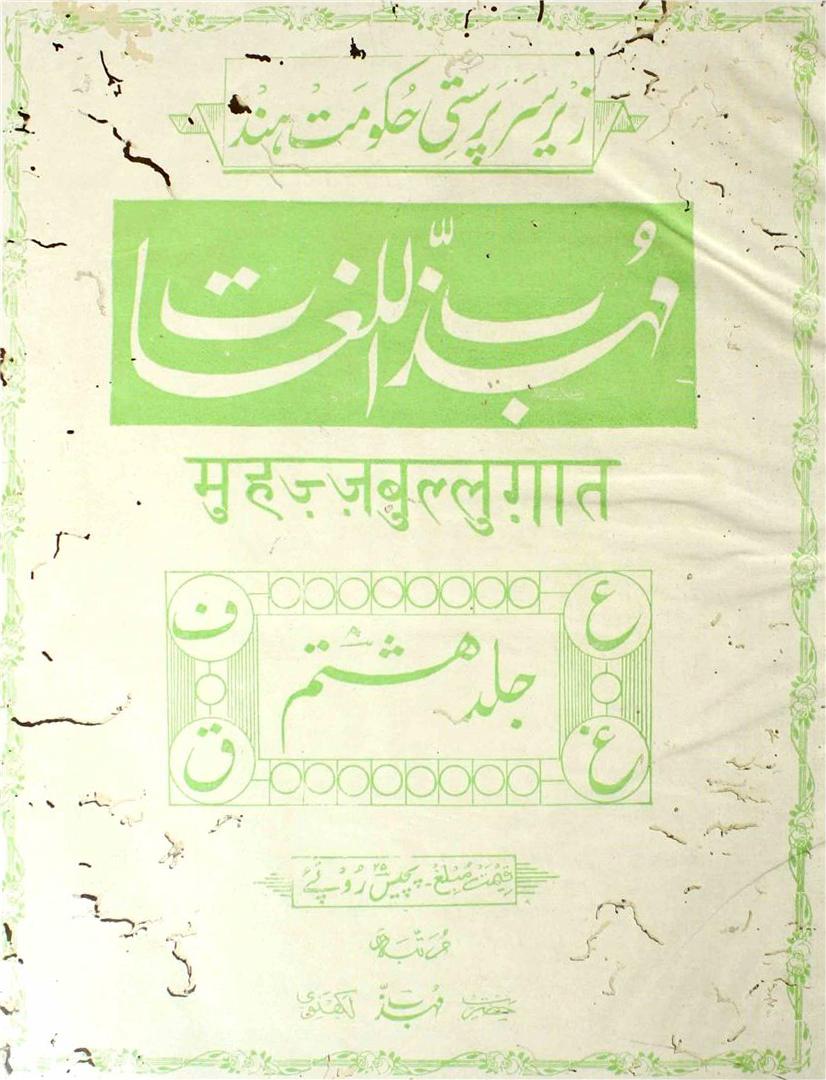 زیرِ سَرپَرستی حُکومَتْ ہند
مُہذّب اللغات
मुहज़्ज़बुल्लुग़ात
ع
ف
جلد ہشتم
۸
غ
ق
قیمت مُبلغ۔ پچیس ۲۵ رُوپئے
مُرتّبہ
حضرت مُہذّب لکھنوی